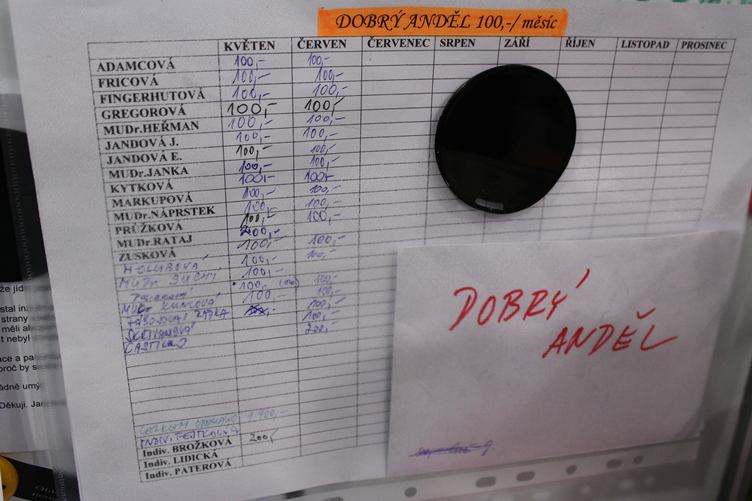 DOBRÝ ANDĚL 100,-/ měsíc
KVĚTEN ČERVEN ČERVENEC SRPEN ZÁŘÍ ŘÍJEN LISTOPAD PROSINEC
ADAMCOVÁ 100,- 100,-
FRICOVÁ 100,- 100,-
FINGERHUTOVÁ 100,- 100,-
GREGOROVÁ 100,- 100,-
MUDr.HEŘMAN 100,- 100,-
JANDOVÁ J. 100,- 100,-
JANDOVÁ E. 100,- 100,-
MUDr.JANKA 100,- 100,-
KYTKOVÁ 100,- 100,-
MARKUPOVÁ 100,- 100,-
MUDr.NÁPRSTEK 100,- 100,-
PRŮŽKOVÁ 100,- 100,-
MUDr.RATAJ
ZUSKOVÁ 100,- 100,-
HOLUBOVÁ 100,- 100,-
MUDr. SUCHÝ 100,-
100,- 100,-
MUDr KUNCOVÁ 100,- 100,-
100,-
100,-
200,-
INDIV.
Indiv. BROŽKOVÁ 200,-
Indiv. LIDICKÁ
Indiv. PATEROVÁ
DOBRÝ
ANDĚL
že jíd
stal inz
strany
měli al
t nebyl
ace a pa
proč by se
ádně umý
Děkuji. Jan